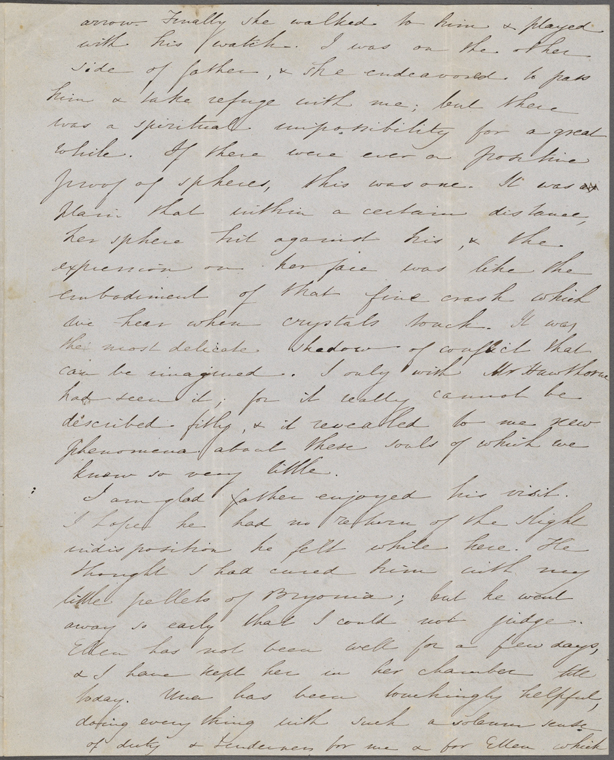 arrow. Finally she walked to him & played
with his watch. I was on the other
side of father, & she endeavored to pass
him & take refuge with me; but there
was a spiritual impossibility for a great
while. If there were ever a positive
proof of spheres, this was one. It was
plain that within a certain distance,
her sphere hit against his, & the
expression on her face was like the
embodiment of that fine crash which
we hear when crystals touch. It was
the most delicate shadow of conflict that
can be imagined. I only wish Mr Hawthorne
had seen it; for it really cannot be
described fitly, & it revealed to me new
phenomena about these souls of which we
know so very little.
I am glad father enjoyed his visit.
I hope he had no return of the slight
indisposition he felt while here. He
thought I had cured him with my
little pellets of Bryonia; but he went
away so early that I could not judge.
Ellen has not been well for a few days,
& I have kept her in her chamber till
today. Una has been touchingly helpful,
doing every thing with such a solemn sense
of duty & tenderness for me & for Ellen which